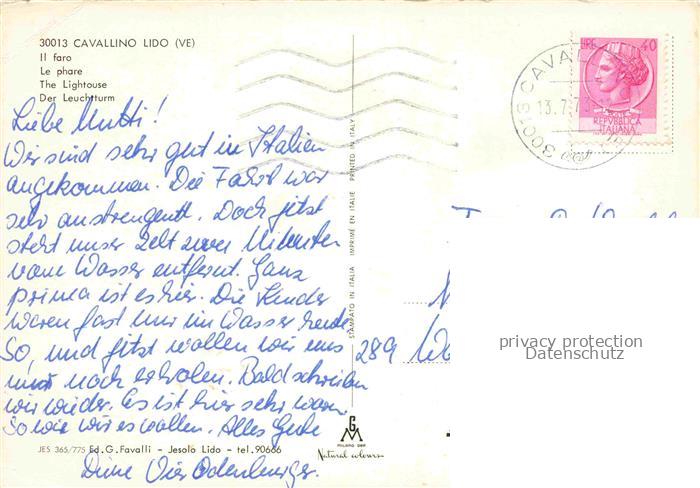 30013 CAVALLINO LIDO (VE)
Il faro
Le phare
The Lightouse
Der Leuchtturm
Liebe Mutti!
Wir sind sehr gut in Italien
angekommen. Die Fahrt war
sehr anstrengend. Doch jetzt
steht unser Zelt zwei Minuten
vom Wasser entfernt. Ganz
prima ist es hier. Die Kinder
waren fast nur im Wasser heute.
So, und jetzt wollen wir uns
nur noch erholen. Bald schreiben
wir wieder. Es ist hier sehr warm.
So wie wir es wollen. Alles Gute
Deine Vier
JES 365/775 Ed. G. Favalli - Jesolo Lido - tel. 90666
STAMPATO IN ITALIA IMPRIMÉ EN ITALIE PRINTED IN ITALY
G
M
MILANO
Natural colours
30013 CAVAL
13.7.73
LIRE 40
POSTE
REPVBBLICA
ITALIANA
289
privacy protection
Datenschutz